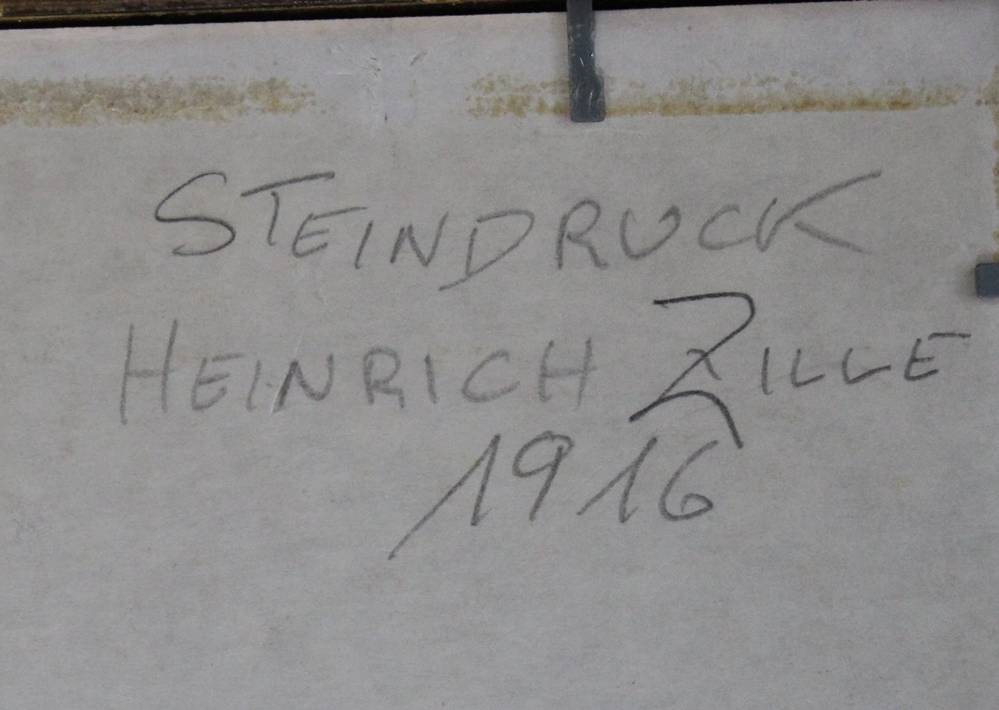 STEINDRUCK
HEINRICH ZILLE
1916